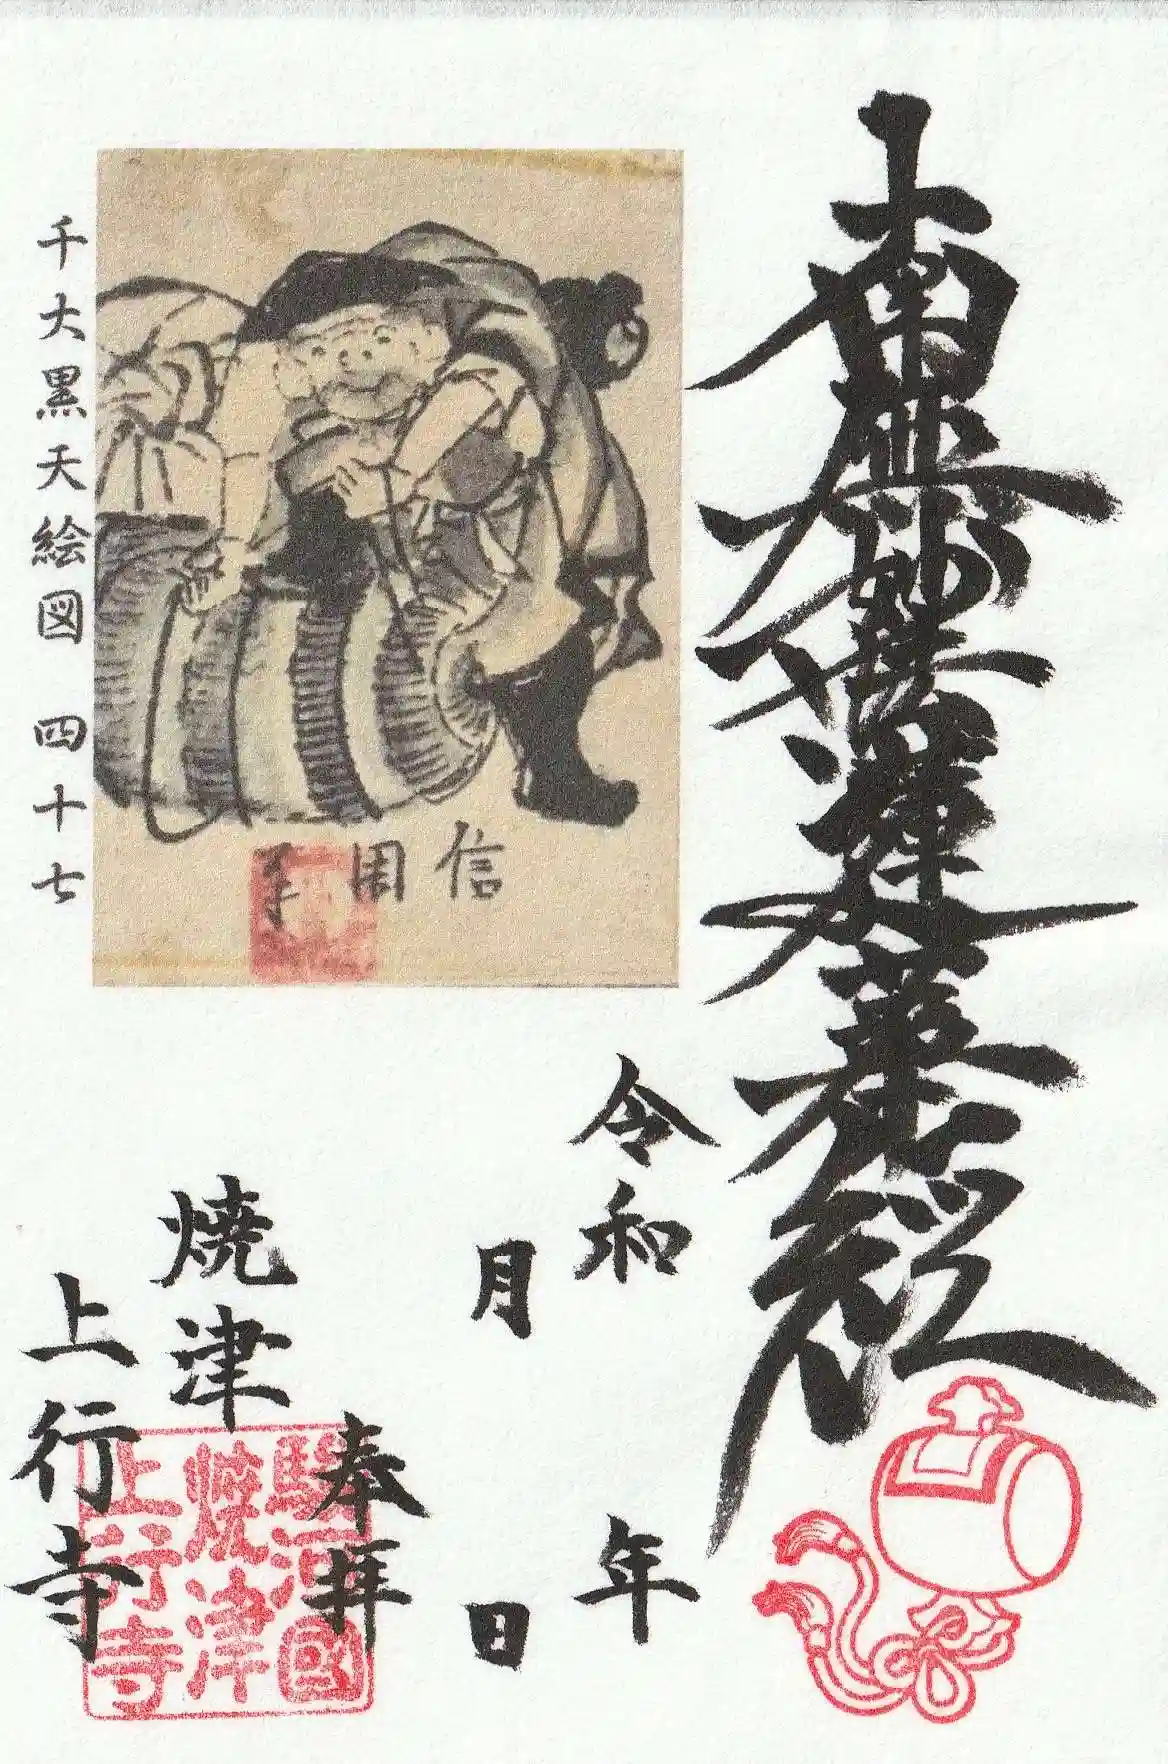 南無妙法蓮華経
令和 年
月 日
奉拝
焼津
上行寺
千大黒天絵図 四十七
信
周
筆
駿河國
焼津
上行寺